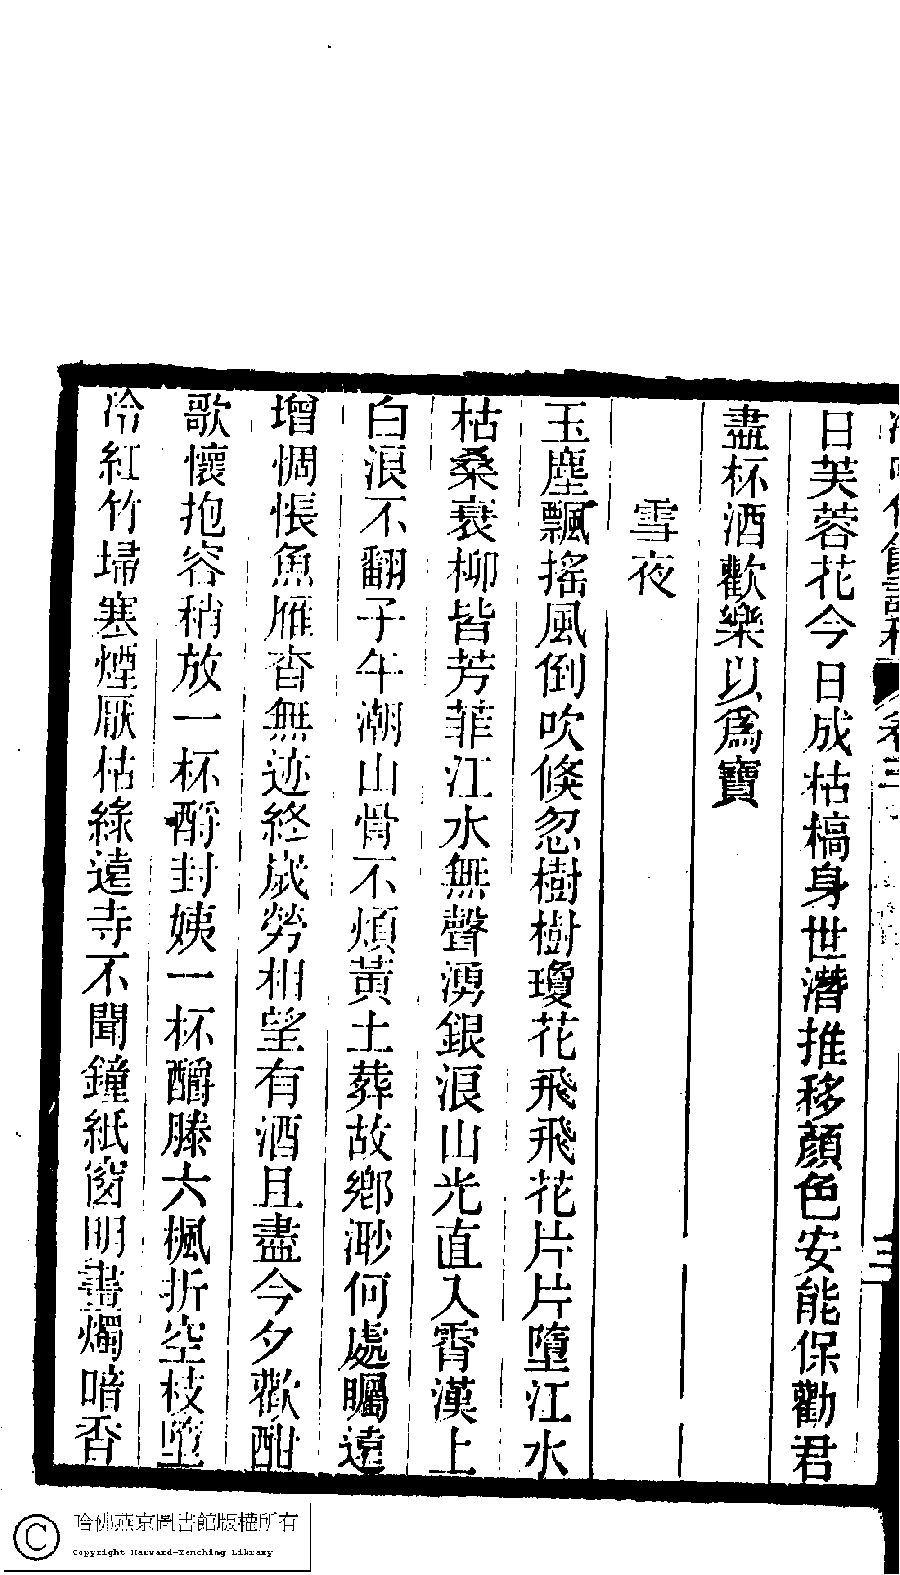 日芙蓉花今日成枯槁身世潛推移顏色安能保勸君
盡杯酒歡樂以爲寶
雪夜
玉塵飄搖風倒吹倏忽樹樹瓊花飛飛花片片墮江水
枯桑衰柳皆芳菲江水無聲湧銀浪山光直入霄漢上
白浪不翻子午潮山骨不煩黃土葬故鄉渺何處矚遠
增惆悵魚雁杳無迹終歲勞相望有酒且盡今夕歡酣
歌懷抱容稍放一杯酹封姨一杯酹滕六楓折空枝墮
冷紅竹埽寒煙厭枯綠遠寺不聞鐘紙窗明畫燭暗香
卷三
三
哈佛燕京圖書館版權所有
Copyright Harvard-Yenching Library